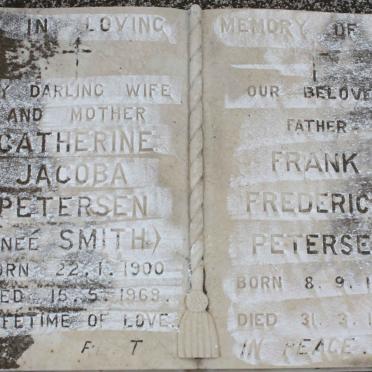 IN LOVING
Y DARLING WIFE
AND MOTHER
CATHERINE
JACOBA
PETERSEN
NEE SMITH)
ORN 22.1.1900
ED 15.5.1969
IFETIME OF LOVE
MEMORY OF
OUR BELOVE
FATHER
FRANK
FREDERIC
PETERSE
BORN 8.9.1
DIED 31.3.1
IN PEACE